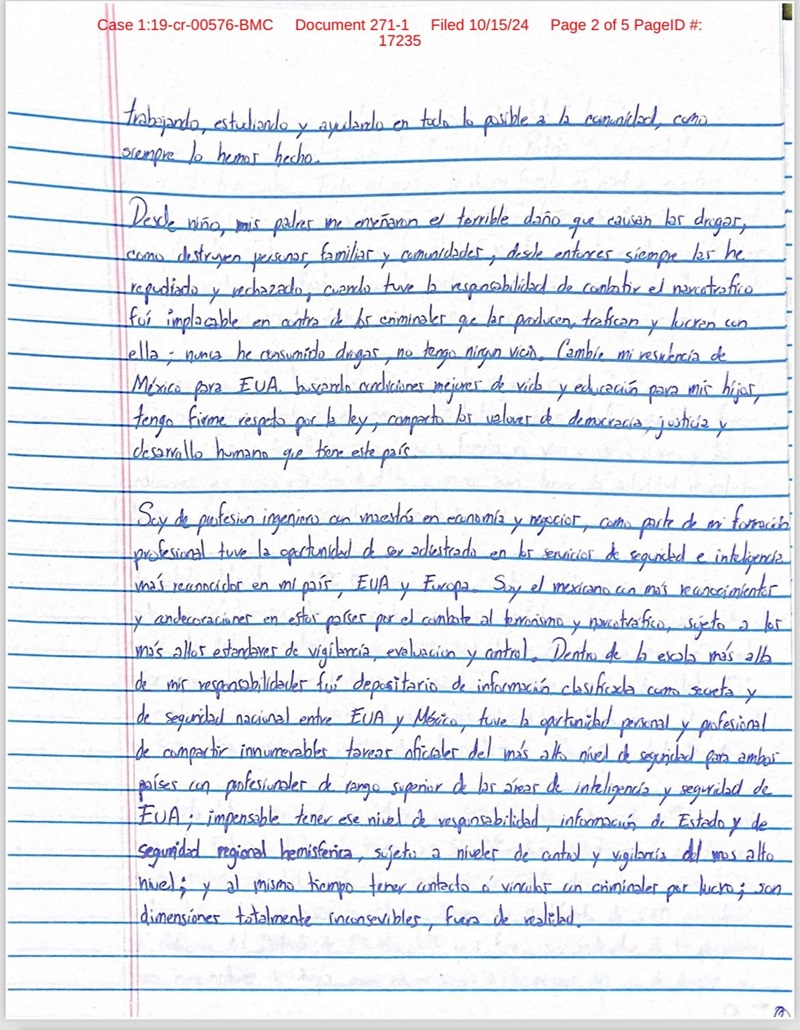 Case 1:19-cr-00576-BMC Document 271-1 Filed 10/15/24 Page 2 of 5 PageID #:
17235
trabajando, estudiando y ayudando en todo lo posible a la comunidad, como
siempre lo hemos hecho.
Desde niño, mis padres me enseñaron el terrible daño que causan las drogas,
como destruyen personas, familias y comunidades, desde entonces siempre las he
repudiado y rechazado, cuando tuve la responsabilidad de combatir el narcotrafico
fuí implacable en contra de los criminales que las producen, trafican y lucran con
ella; nunca he consumido drogas, no tengo ningun vicio. Cambie mi residencia de
México para EUA. buscando condiciones mejores de vida y educación para mis hijos,
tengo firme respeto por la ley, comparto los valores de democracia, justicia y
desarrollo humano que tiene este país.
Soy de profesion ingeniero con maestría en economía y negocios, como parte de mi formación
profesional tuve la oportunidad de ser adiestrado en los servicios de seguridad e inteligencia
más reconocidos en mi país, EUA y Europa. Soy el mexicano con más reconocimientos
y condecoraciones en estos países por el combate al terrorismo y narcotrafico, sujeto a los
más altos estandares de vigilancia, evaluacion y control. Dentro de la escala más alta
de mis responsabilidades fuí depositario de información clasificada como secreta y
de seguridad nacional entre EUA y México, tuve la oportunidad personal y profesional
de compartir innumerables tareas oficiales del más alto nivel de seguridad para ambos
países con profesionales de rango superior de las áreas de inteligencia y seguridad de
EUA; impensable tener ese nivel de responsabilidad, información de Estado y de
seguridad regional hemisferica, sujeto a niveles de control y vigilancia del mas alto
nivel; y al mismo tiempo tener contacto ó vinculos con criminales por lucro; son
dimensiones totalmente inconsevibles, fuera de realidad.